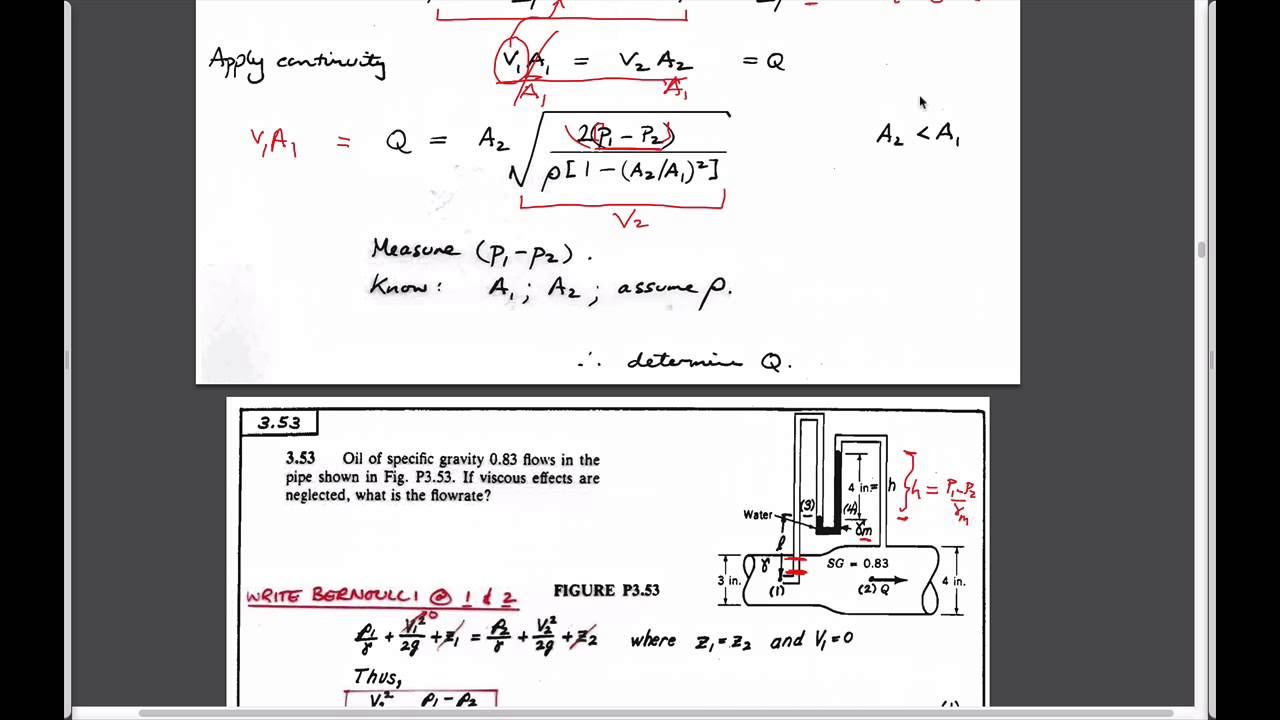 Apply continuity V₁A₁ = V₂A₂ = Q
A₁ A₁
V₁A₁ = Q = A₂ √ 2(P₁ – P₂) / ρ[1 – (A₂/A₁)²] A₂ < A₁
V₂
Measure (P₁ – P₂).
Know: A₁; A₂; assume ρ.
∴ determine Q.
3.53
3.53 Oil of specific gravity 0.83 flows in the
pipe shown in Fig. P3.53. If viscous effects are
neglected, what is the flowrate?
4 in.= h
h = P₁–P₂ / γm
(3) (4)
Water
γm
l
γ
SG = 0.83
3 in.
(1)
(2) Q
4 in.
FIGURE P3.53
WRITE BERNOULLI @ 1 & 2
P₁/γ + V₁²/2g + Z₁ = P₂/γ + V₂²/2g + Z₂ where Z₁ = Z₂ and V₁ = 0
0
Thus,
V₂² P₁ – P₂